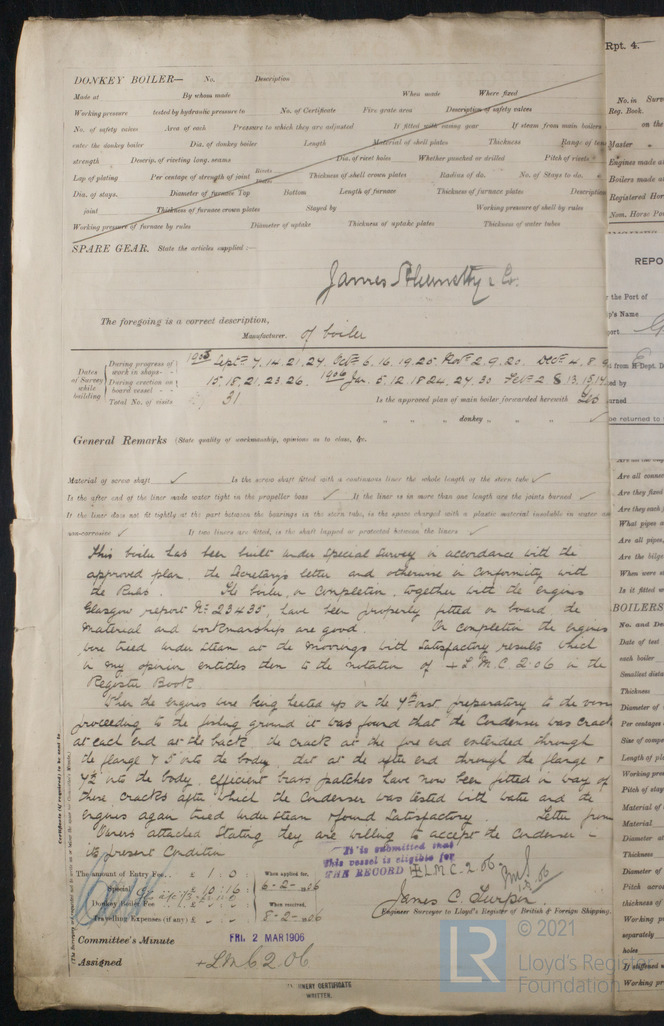 DONKEY BOILER— No. Description
Made at By whom made When made Where fixed
Working pressure tested by hydraulic pressure to No. of Certificate Fire grate area Description of safety valves
No. of safety valves Area of each Pressure to which they are adjusted If fitted with easing gear If steam from main boilers
enter the donkey boiler Dia. of donkey boiler Length Material of shell plates Thickness Range of tens
strength Descrip. of riveting long. seams Dia. of rivet holes Whether punched or drilled Pitch of rivets
Lap of plating Per centage of strength of joint Rivets Plates Thickness of shell crown plates Radius of do. No. of Stays to do.
Dia. of stays. Diameter of furnace Top Bottom Length of furnace Thickness of furnace plates Description
joint Thickness of furnace crown plates Stayed by Working pressure of shell by rules
Working pressure of furnace by rules Diameter of uptake Thickness of uptake plates Thickness of water tubes
SPARE GEAR. State the articles supplied :—
James & Co.
The foregoing is a correct description,
Manufacturer. of boiler
Dates of Survey while building
During progress of work in shops - - 1905 Sept. 7. 14. 21. 27. Oct. 6. 16. 19. 25. Nov. 2. 9. 20. Dec. 4. 8. 9
During erection on board vessel - - 15. 18. 21. 23. 26. 1906 Jan. 5. 12. 18. 24. 27. 30 Feb. 2 8 13. 15. 17
Total No. of visits 31 Is the approved plan of main boiler forwarded herewith Yes
" " " donkey " " "
General Remarks (State quality of workmanship, opinions as to class, &c.
Material of screw shaft ✓ Is the screw shaft fitted with a continuous liner the whole length of the stern tube ✓
Is the after end of the liner made water tight in the propeller boss ✓ If the liner is in more than one length are the joints burned ✓
If the liner does not fit tightly at the part between the bearings in the stern tube, is the space charged with a plastic material insoluble in water and
non-corrosive ✓ If two liners are fitted, is the shaft lapped or protected between the liners ✓
This boiler has been built under Special Survey in accordance with the
approved plan, the Secretary's letter and otherwise in conformity with
the Rules. The boiler, on completion, together with the engines
Glasgow report No. 23435, have been properly fitted on board, the
material and workmanship are good. On completion the engines
were tried under steam at the moorings with satisfactory results which
in my opinion entitles them to the notation of + L.M.C 2.06 in the
Register Book
When the engines were being heated up on the preparatory to the
proceeding to the fishing ground it was found that the Condenser was crack
at each end at the back, the crack at the fore end extended through
the flange & 5 into the body, that at the after end through the flange &
7½ into the body, efficient brass patches have now been fitted in way of
these cracks after which the Condenser was tested with water and the
engines again tried under steam & found satisfactory. Letter from
Owners attached stating they are willing to accept the Condenser in
its present condition
It is submitted that
this vessel is eligible for
THE RECORD + L M C 2.06
The amount of Entry Fee.. £ 1 : 0 : When applied for,
Special £ 10 : 16 : 6-2-1906
Donkey Boiler Fee £ : : When received,
Travelling Expenses (if any) £ : : 8-2-1906
James C.
Engineer Surveyor to Lloyd's Register of British & Foreign Shipping.
Committee's Minute FRI. 2 MAR 1906
Assigned + LMC 2.06
WRITTEN.
Certificate (if required) to be sent to
Rpt. 4.
No. in Surv
Reg. Book.
on the
Master
Engines made a
Boilers made a
Registered Hor
Nom. Horse Po
REPO
the Port of
's Name
ort
be returned to
Are all connec
Are they fixed
Are they each
What pipes a
Are all pipes,
Are the bilge
When were s
Is it fitted w
BOILERS
No. and De
Date of test
each boiler
Smallest dista
Thickness
Diameter of
Per centage
Size of compe
Length of pla
Working pres
Pitch of stay
Material of
Material
Diameter at
Thickness
Diameter of
Pitch across
thickness of
Working p
separately
holes
If stiffened
Working pr
LR
© 2021
Lloyd's Register
Foundation